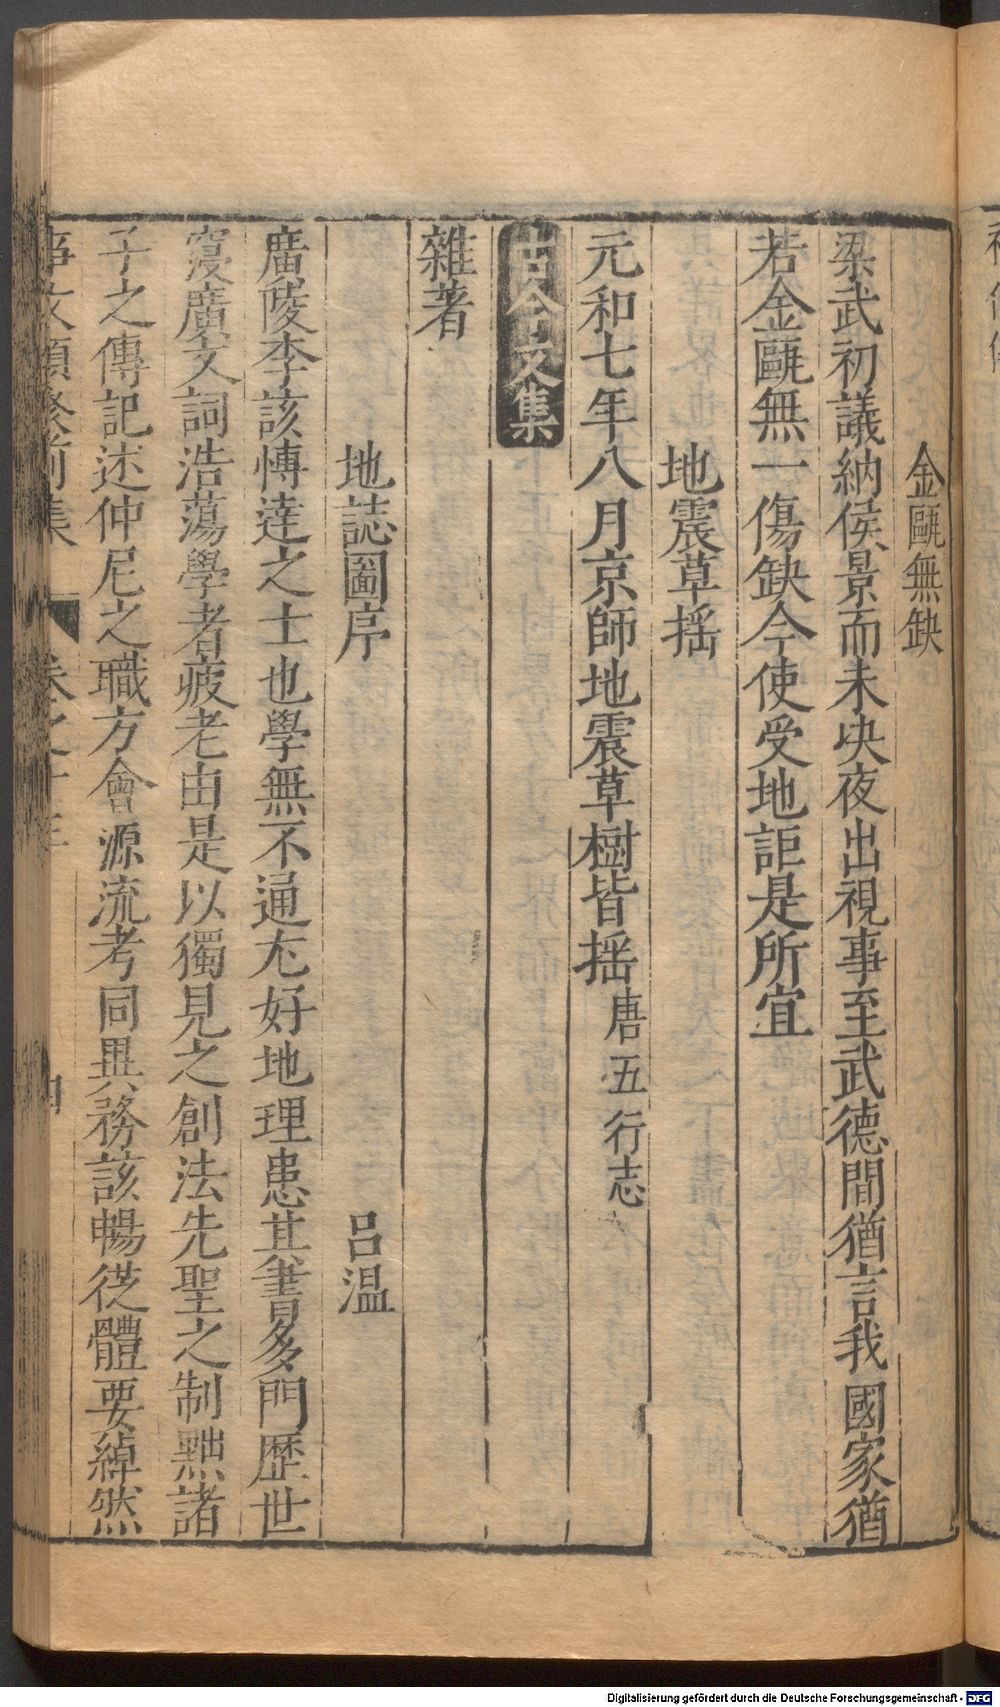 金甌無缺
梁武初議納侯景而未决夜出視事至武德閤猶言我國家猶
若金甌無一傷缺今使受地詎是所宜
地震草揺
元和七年八月京師地震草樹皆揺唐五行志
古今文集
雜著
地誌圖序 吕温
廣陵李該愽達之士也學無不通尤好地理患其書多門歷世
寖廣文詞浩蕩學者疲老由是以獨見之創法先聖之制黜諸
子之傳記述仲尼之職方會源流考同異務該暢從體要綽然
事文類聚前集 卷之十三 四
Digitalisierung gefördert durch die Deutsche Forschungsgemeinschaft - DFG